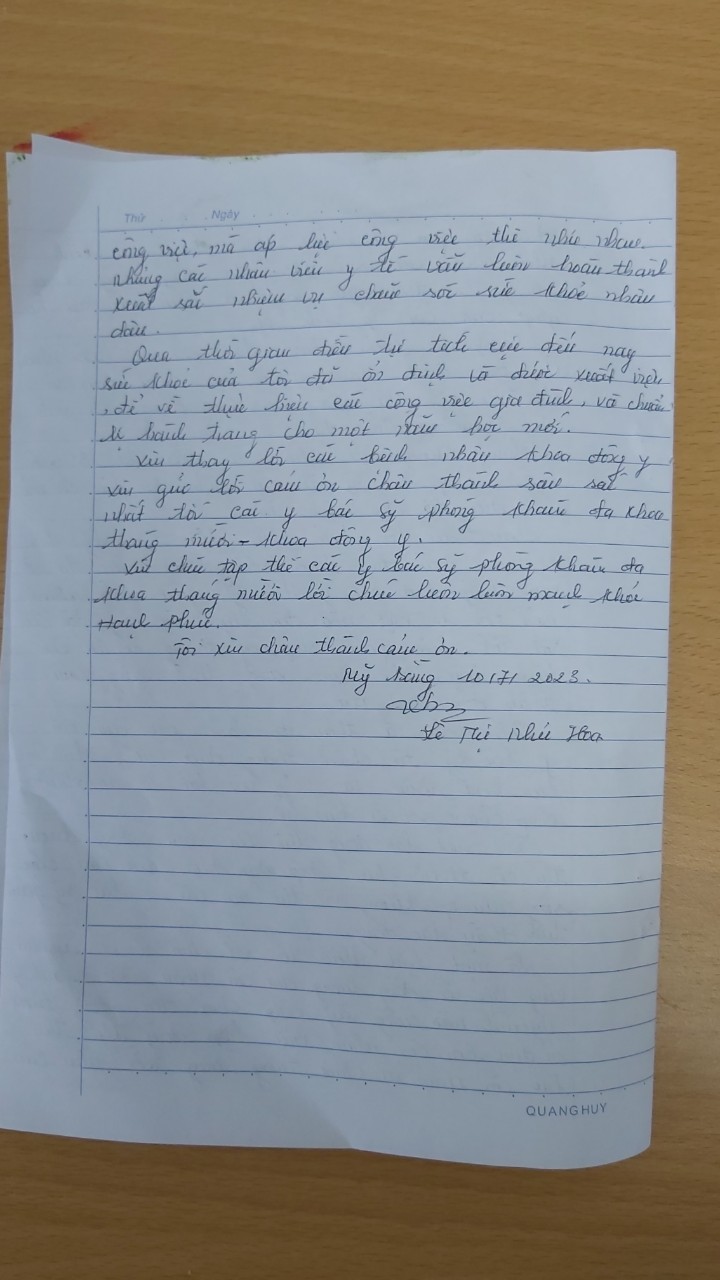 Thứ Ngày
công việc, mà áp lực công việc thì như nhau.
nhưng các nhân viên y tế vẫn luôn hoàn thành
xuất sắc nhiệm vụ chăm sóc sức khoẻ nhân
dân.
Qua thời gian điều trị tích cực đến nay
sức khoẻ của tôi đã ổn định và được xuất viện
, để về thực hiện các công việc gia đình, và chuẩn
bị hành trang cho một năm học mới.
Xin thay lời các bệnh nhân khoa đông y
xin gửi lời cảm ơn chân thành sâu sắc
nhất tới các y bác sỹ phòng khám đa khoa
tháng mười - khoa đông y.
Xin chúc tập thể các y bác sỹ phòng khám đa
khoa tháng mười lời chúc luôn luôn mạnh khoẻ
Hạnh phúc.
Tôi xin chân thành cảm ơn.
Mỹ 10/7/2023.
Lê Thị Như Hoa
QUANG HUY